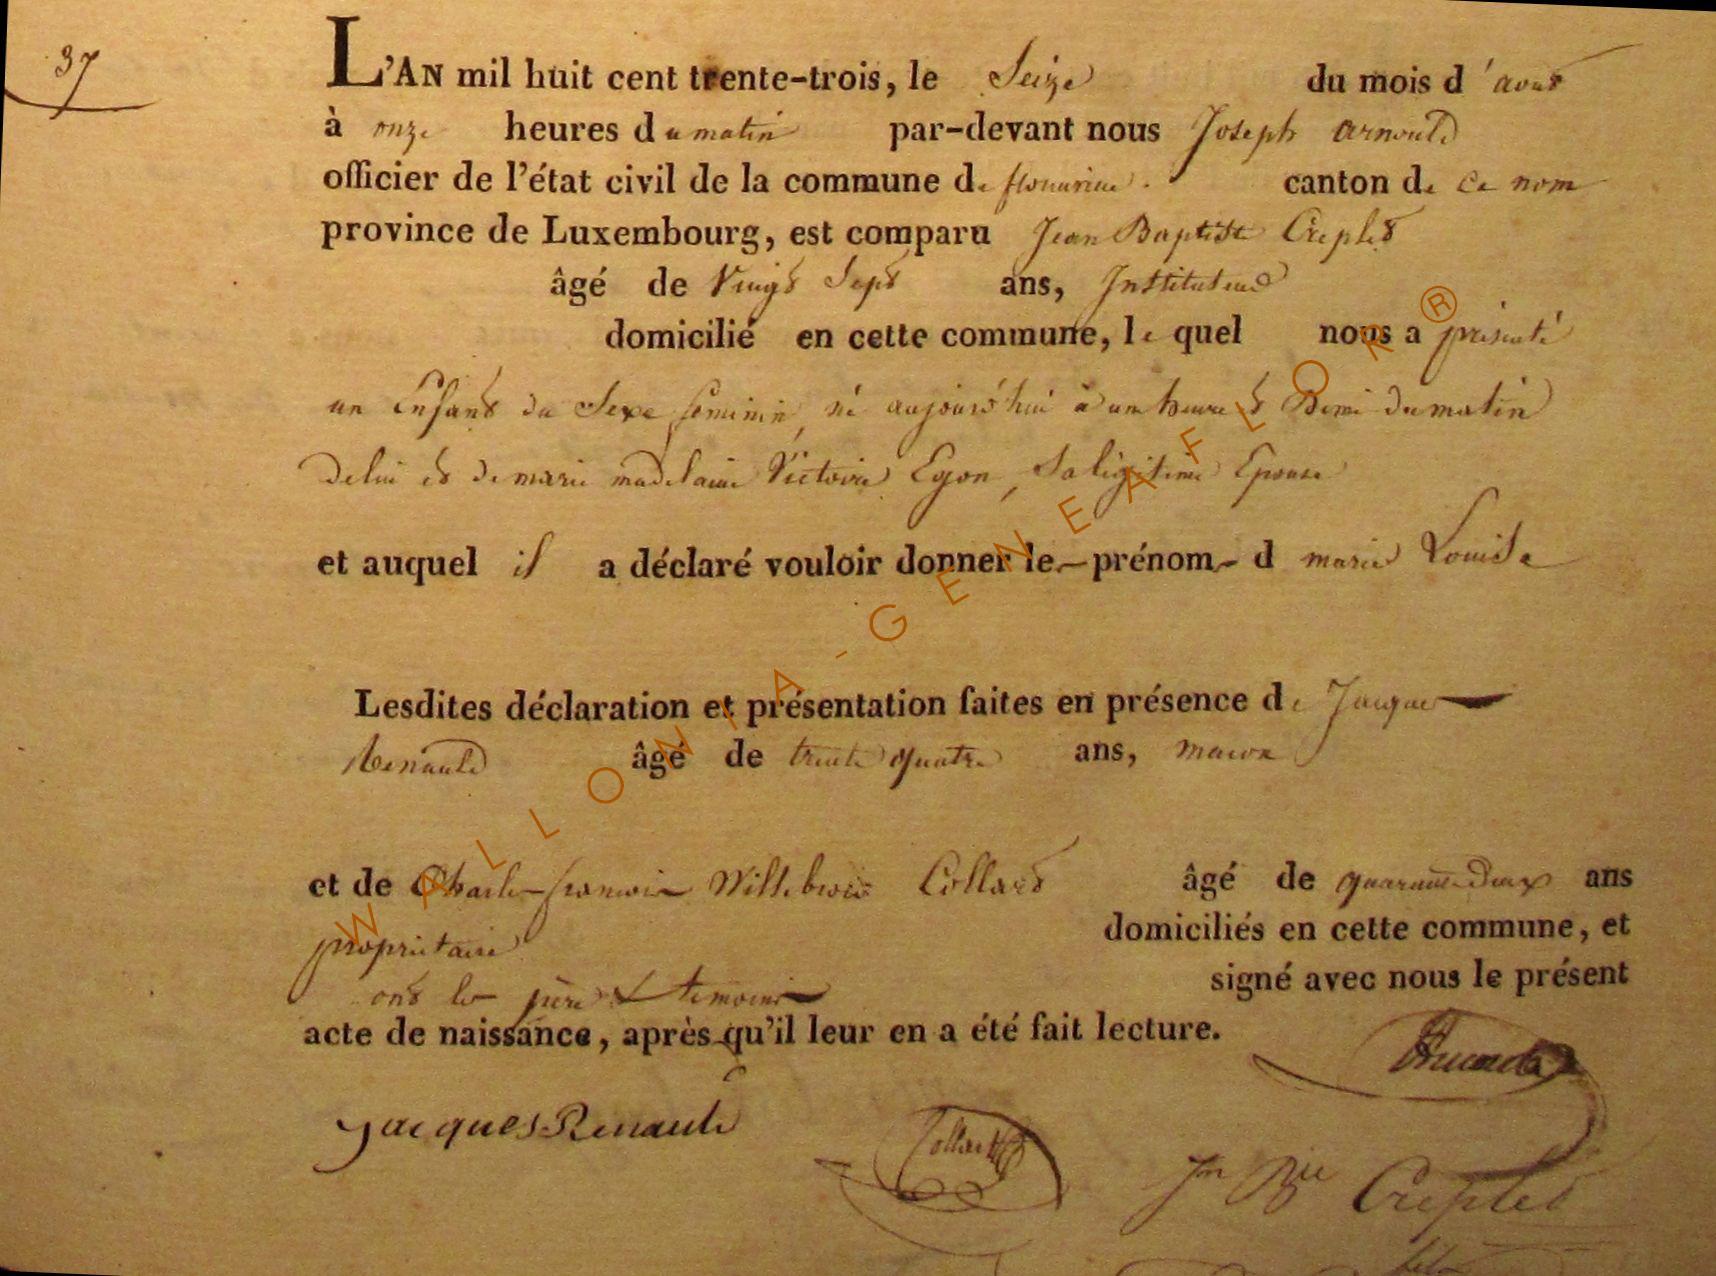 37
L'AN mil huit cent trente-trois, le Seize du mois d'aout
à onze heures du matin par-devant nous Joseph arnould
officier de l'état civil de la commune de canton de ce nom
province de Luxembourg, est comparu Jean Baptiste Creplet
âgé de Vingt Sept ans, Instituteur
domicilié en cette commune, le quel nous a présenté
un Enfant du Sexe feminin, né aujourd'hui à un heure et Demi du matin
de lui et de marie madelaine Victoire Egon, Sa légitime Epouse
et auquel il a déclaré vouloir donner le prénom d marie Louise
Lesdites déclaration et présentation faites en présence de Jacques
Renauld âgé de trente quatre ans, macon
et de Charles francois Willebrord Collard âgé de quarante Deux ans
proprietaire domiciliés en cette commune, et
ont les père et temoins signé avec nous le présent
acte de naissance, après qu'il leur en a été fait lecture.
Jacques Renauld
Collard
Jn Bte Creplet
WALLONIA-GENEAFLOR®